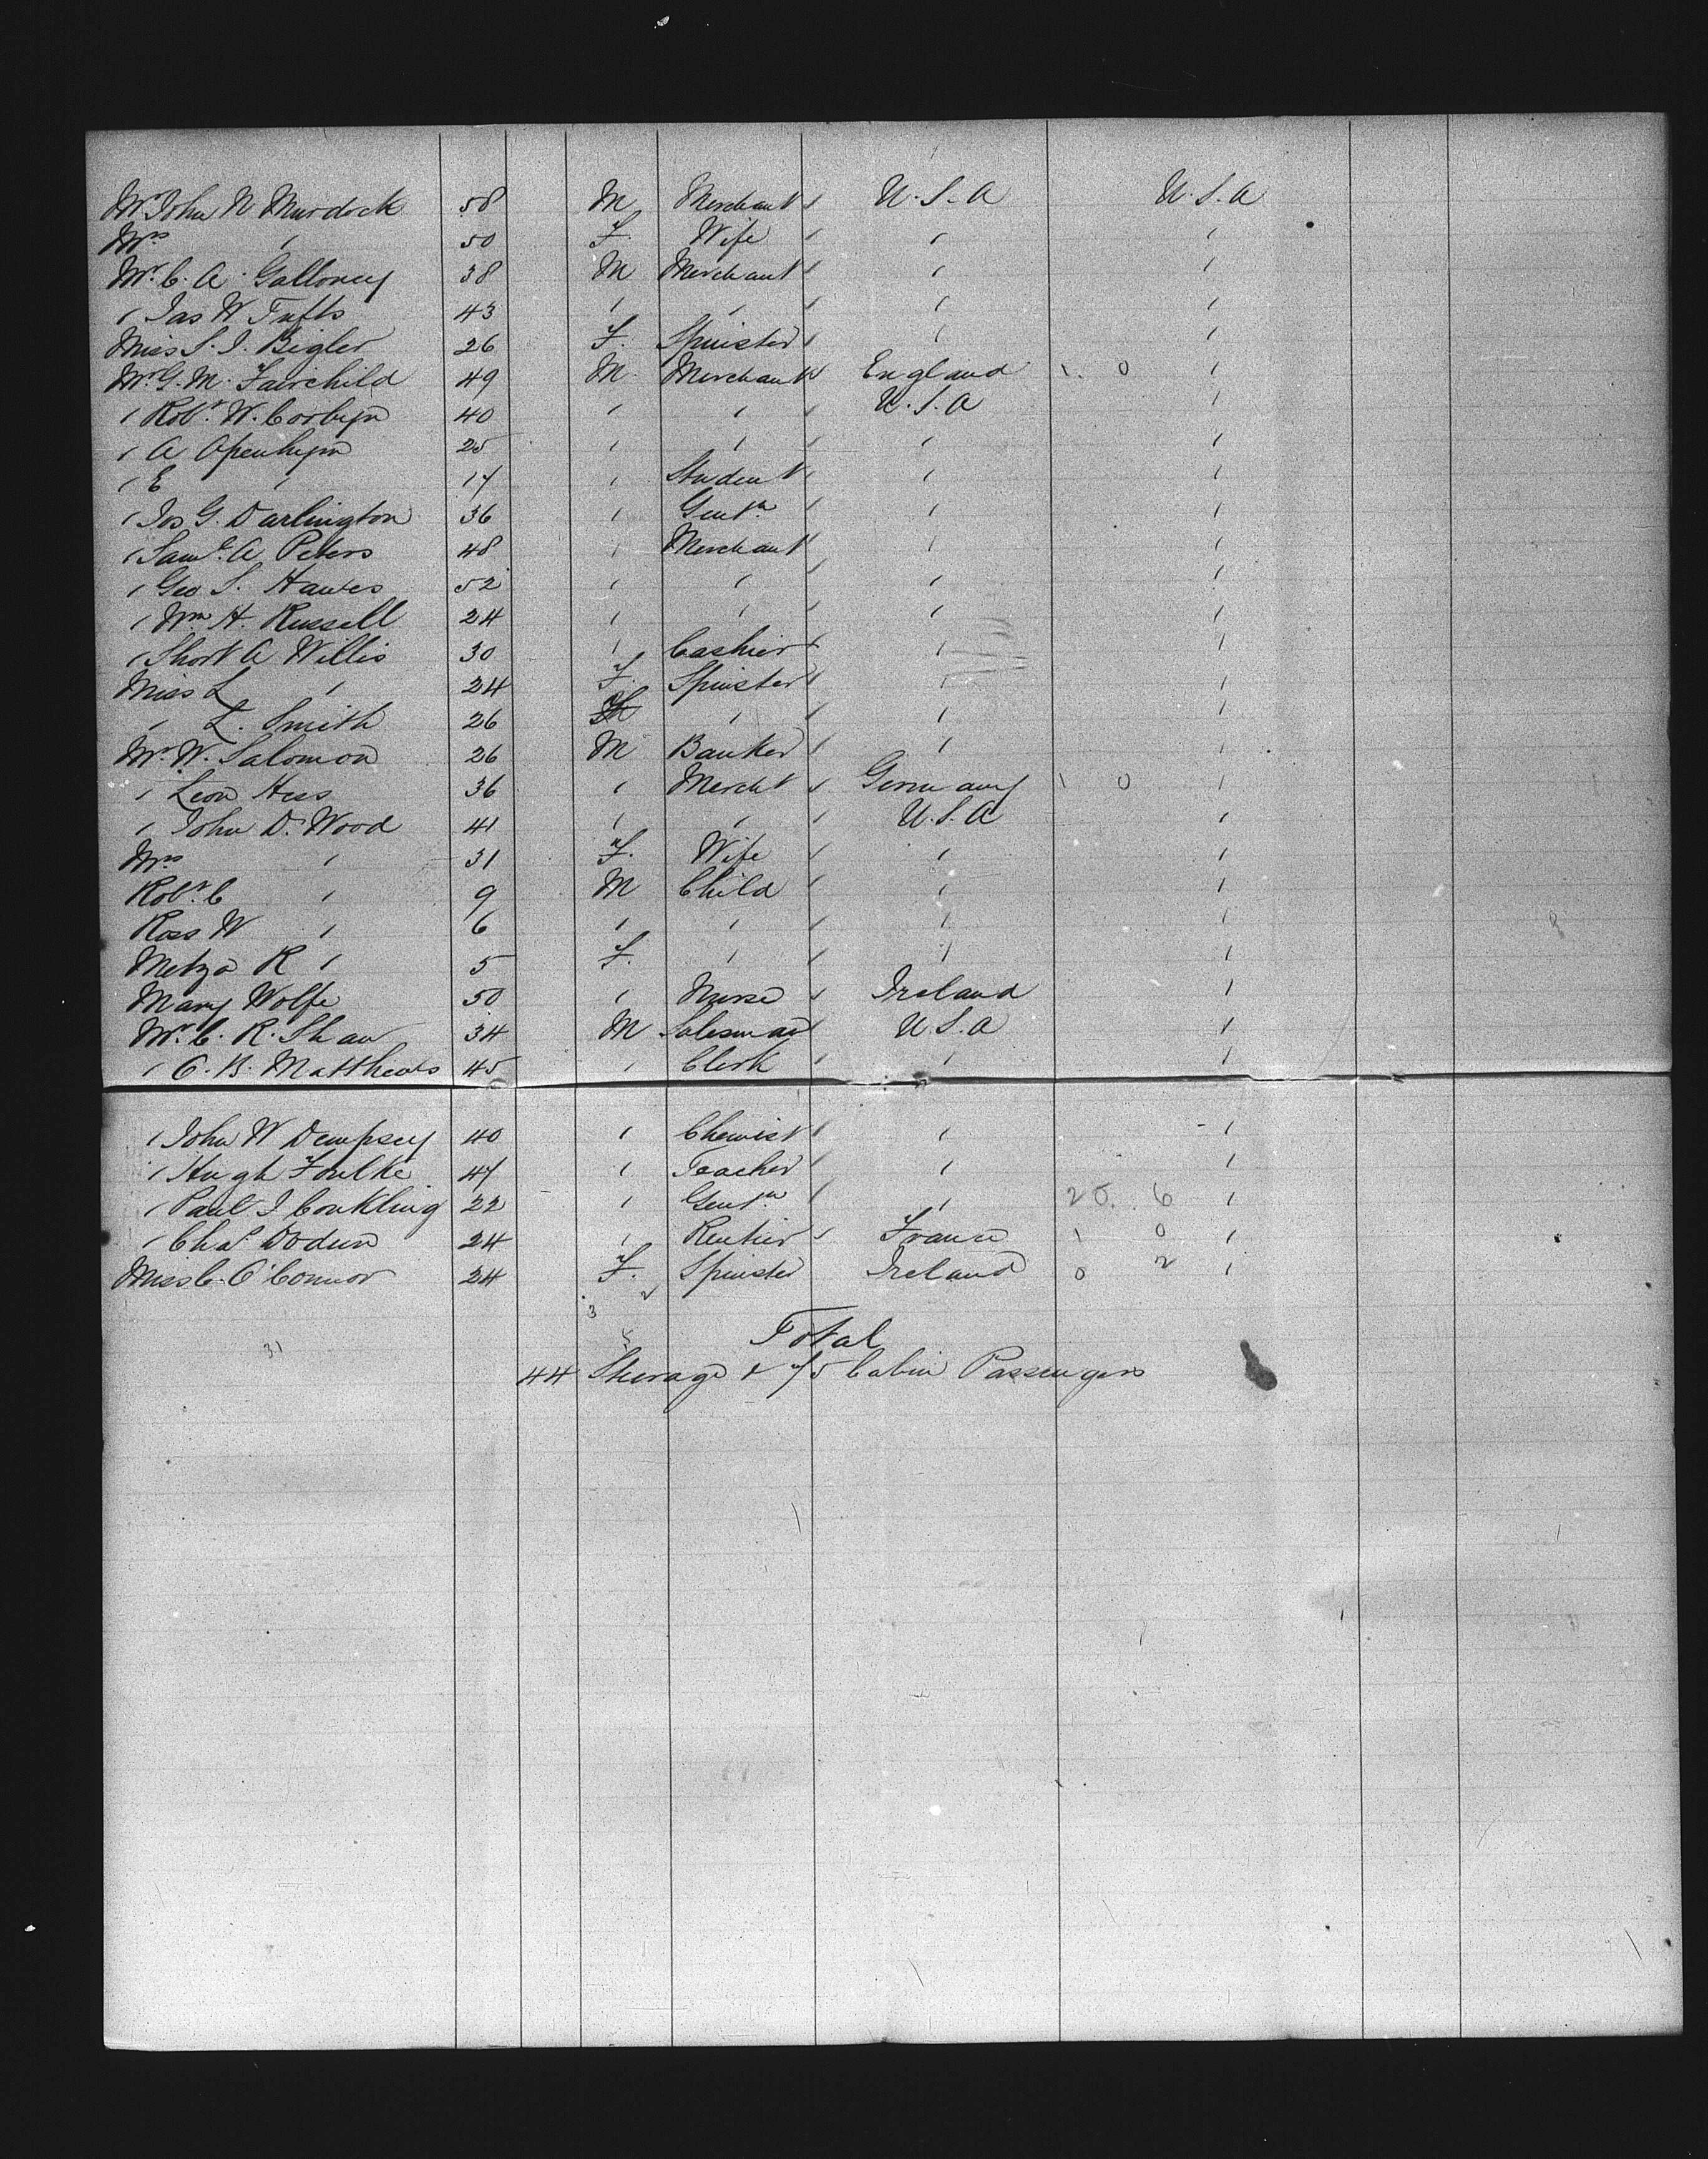 Mr John N Murdock 58 M Merchant U.S.A U.S.A
Mrs " 50 F. Wife " "
Mr. C. A. Galloney 38 M Merchant " "
" Jas W Tufts 43 " " " "
Miss S. J. Bigler 26 F. Spinster " "
Mr G. M. Fairchild 49 M. Merchant England 1. 0 "
" Robt. W. Corbyn 40 " " U.S.A "
" A Openhym 25 " " " "
" E " 17 " Student " "
" Jos G. Darlington 36 " Gentn " "
" Saml. A Peters 48 " Merchant " "
" Geo S. Hawes 52 " " " "
" Wm H. Russell 24 " " " "
" Short A Willis 30 " Cashier " "
Miss L " 24 F. Spinster " "
" L. Smith 26 " " "
Mr. W. Salomon 26 M Banker " "
" Leon Hess 36 " Mercht Germany 1 0 "
" John D. Wood 41 " " U.S.A "
Mrs " 31 F. Wife " "
Robt. C " 9 M Child " "
Ross W " 6 " " " "
Metza R " 5 F. " " "
Mary Wolfe 50 " Nurse Ireland "
Mr. C. R. Shaw 34 M Salesman U.S.A "
" O. B. Matthews 45 " Clerk " "
" John W Dempsey 40 " Chemist " "
" Hugh Foulke 47 " Teacher " "
" Paul J Conkling 22 " Gentn " 25. 6 "
" Chas Dodun 24 " Rentier France 1 0 "
Miss C. O'Connor 24 F. Spinster Ireland 0 2 "
3 2
31 Total
44 Sterage & 75 Cabin Passengers